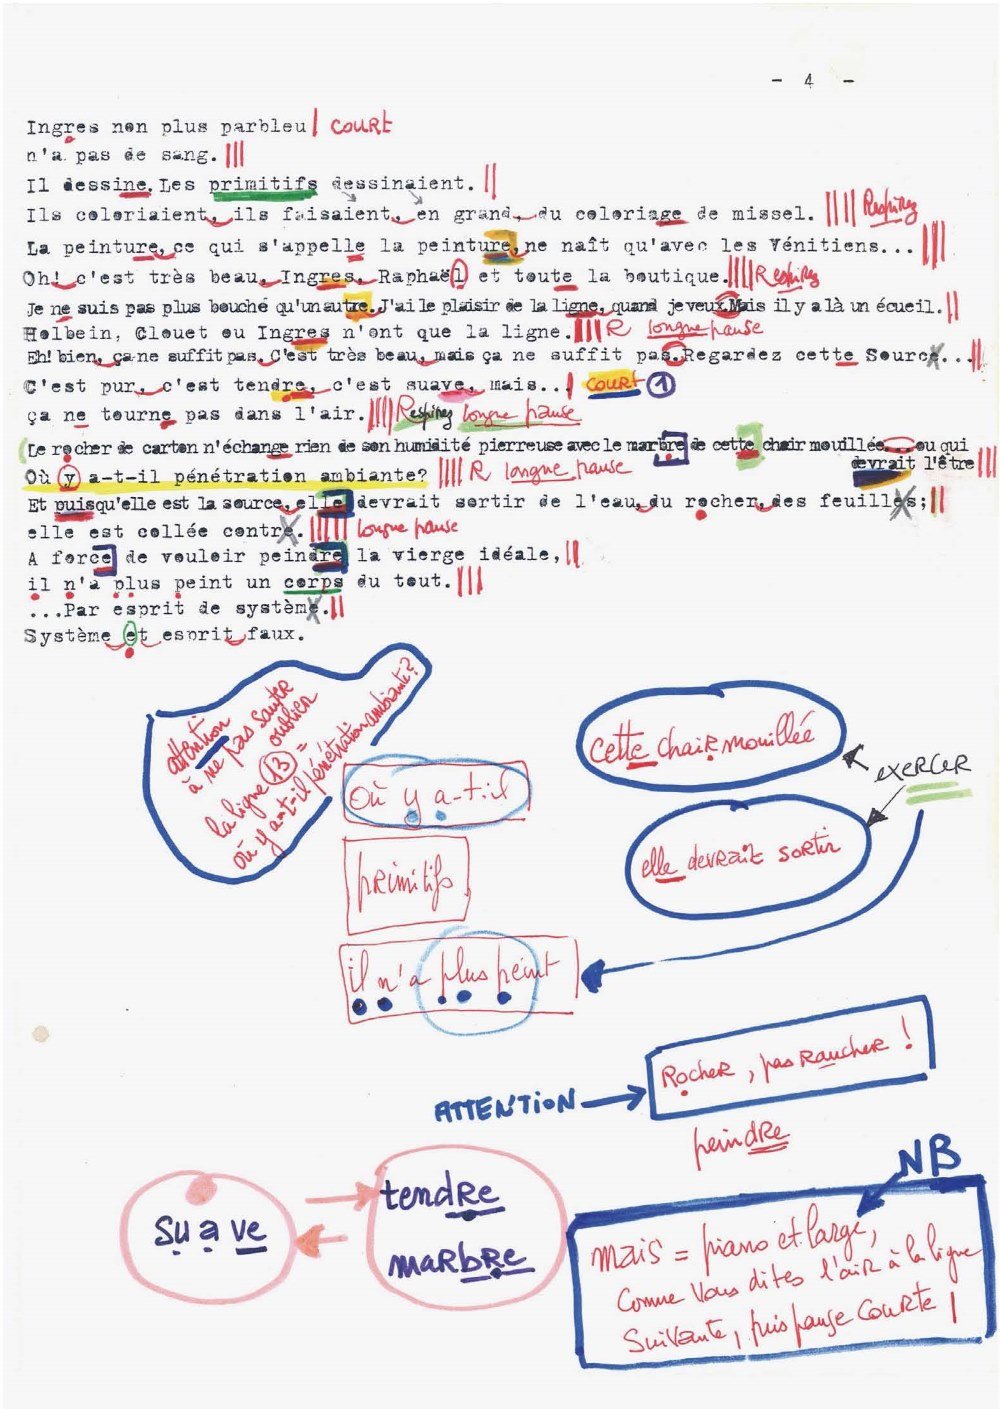 - 4 -
Ingres non plus parbleu| COURT
n'a pas de sang. |||
Il dessine. Les primitifs dessinaient. ||
Ils coloriaient, ils faisaient, en grand, du coloriage de missel. |||| Respirez
La peinture, ce qui s'appelle la peinture, ne naît qu'avec les Vénitiens... |||
Oh! c'est très beau, Ingres, Raphaël et toute la boutique. |||| Respirez
Je ne suis pas plus bouché qu'un autre. J'ai le plaisir de la ligne, quand je veux. Mais il y a là un écueil. ||
Holbein, Clouet ou Ingres n'ont que la ligne. |||| R longue pause
Eh! bien, ça ne suffit pas. C'est très beau, mais ça ne suffit pas. Regardez cette Source... ||
C'est pur, c'est tendre, c'est suave, mais... | COURT 1
ça ne tourne pas dans l'air. |||| Respirez longue pause
Le rocher de carton n'échange rien de son humidité pierreuse avec le marbre de cette chair mouillée ou qui
devrait l'être |||
Où y a-t-il pénétration ambiante? |||| R longue pause
Et puisqu'elle est la source, elle devrait sortir de l'eau, du rocher, des feuilles; ||
elle est collée contre. ||||| longue pause
A force de vouloir peindre la vierge idéale, ||
il n'a plus peint un corps du tout. |||
...Par esprit de système. ||
Système et esprit faux.
attention
à ne pas sauter
oublier
la ligne 13 =
où y a-t-il pénétration ambiante?
cette chair mouillée
Où y a-t-il
EXERCER
elle devrait sortir
primitifs
il n'a plus peint
Rocher, pas Raucher !
ATTENTION
peindre
NB
suave
tendre
marbre
Mais = piano et large,
comme vous dites l'air à la ligne
suivante, puis pause COURTE |